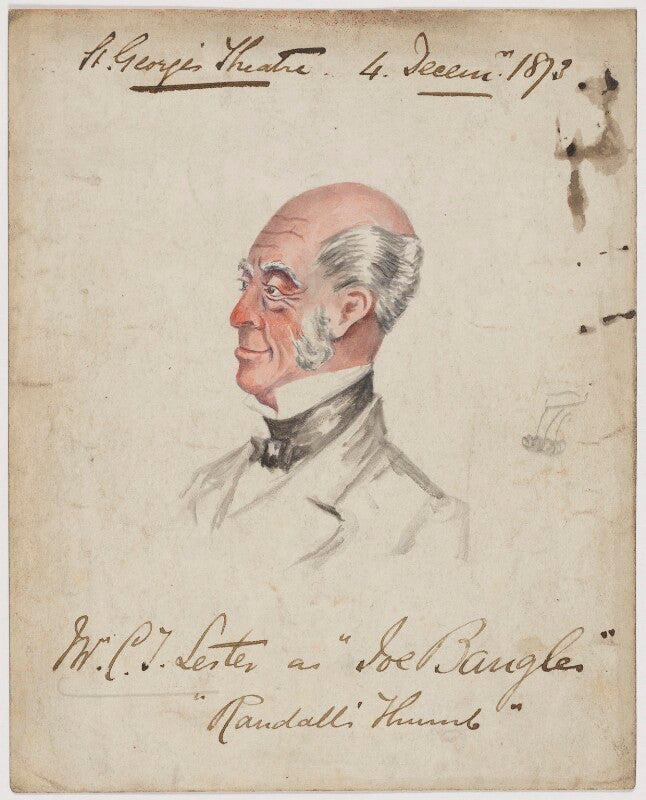 St. George's Theatre. 4. Decemr. 1873
Mr. C. J. Lester as "Joe Bangles"
"Randall's Thumb"